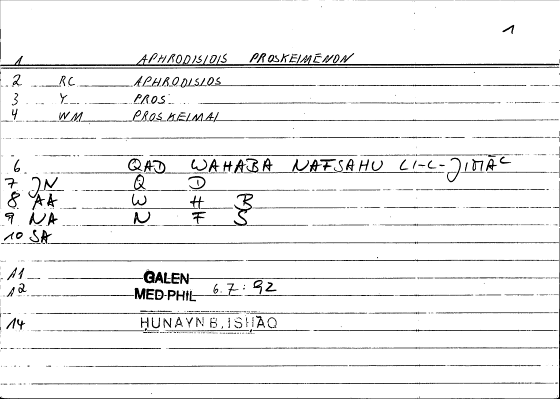 1
1 APHRODISIOIS PROSKEIMENON
2 RC APHRODISIOS
3 Y PROS
4 WM PROSKEIMAI
6 QAD WAHABA NAFSAHU LI-L-JIMĀC
7 JN Q D
8 AA W H B
9 NA N F S
10 SA
11 GALEN
12 MED·PHIL 6.7:92
14 HUNAYN B, ISHĀQ